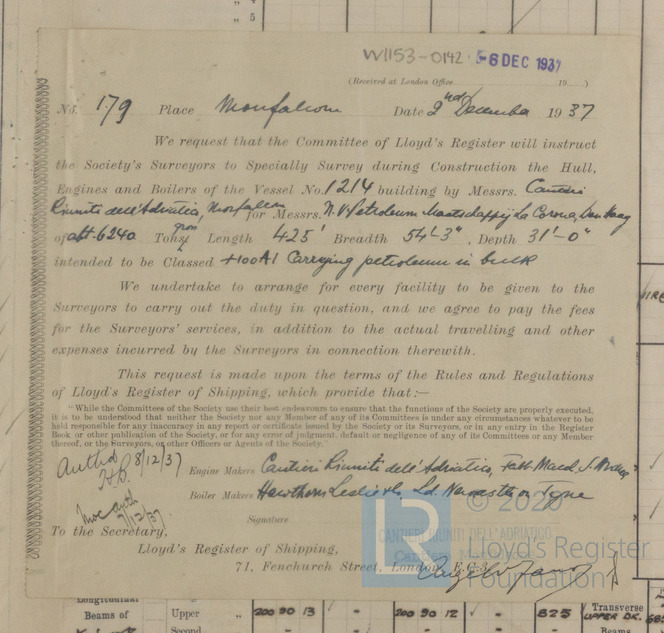 W1153-0142 6 DEC 1937
(Received at London Office 19 )
No. 179 Place Monfalcone Date 2nd December 1937
We request that the Committee of Lloyd's Register will instruct
the Society's Surveyors to Specially Survey during Construction the Hull,
Engines and Boilers of the Vessel No. 1214 building by Messrs. Cantieri
Riuniti dell'Adriatico, Monfalcone for Messrs. N.V. Petroleum Maatschappij La Corona, Den Haag
of abt. 6240 gross Tons, Length 425' Breadth 54'-3", Depth 31'-0"
intended to be Classed +100A1 Carrying petroleum in bulk
We undertake to arrange for every facility to be given to the
Surveyors to carry out the duty in question, and we agree to pay the fees
for the Surveyors' services, in addition to the actual travelling and other
expenses incurred by the Surveyors in connection therewith.
This request is made upon the terms of the Rules and Regulations
of Lloyd's Register of Shipping, which provide that:—
"While the Committees of the Society use their best endeavours to ensure that the functions of the Society are properly executed,
it is to be understood that neither the Society nor any Member of any of its Committees is under any circumstances whatever to be
held responsible for any inaccuracy in any report or certificate issued by the Society or its Surveyors, or in any entry in the Register
Book or other publication of the Society, or for any error of judgment, default or negligence of any of its Committees or any Member
thereof, or the Surveyors, or other Officers or Agents of the Society."
8/12/37
Engine Makers Cantieri Riuniti dell'Adriatico, Fabb. Macch. S. Andrea
Boiler Makers Hawthorn Leslie & Co. Ld. Newcastle on Tyne
7/12/37
Signature
© 2020
CANTIERI RIUNITI DELL'ADRIATICO
To the Secretary,
Lloyd's Register of Shipping,
Lloyd's Register
71, Fenchurch Street, London, E.C.3.
Foundation
Longitudinal
Beams of Upper " 200 90 13 - 200 90 12 - 825 Transverse
UPPER DK.
Second
Beams